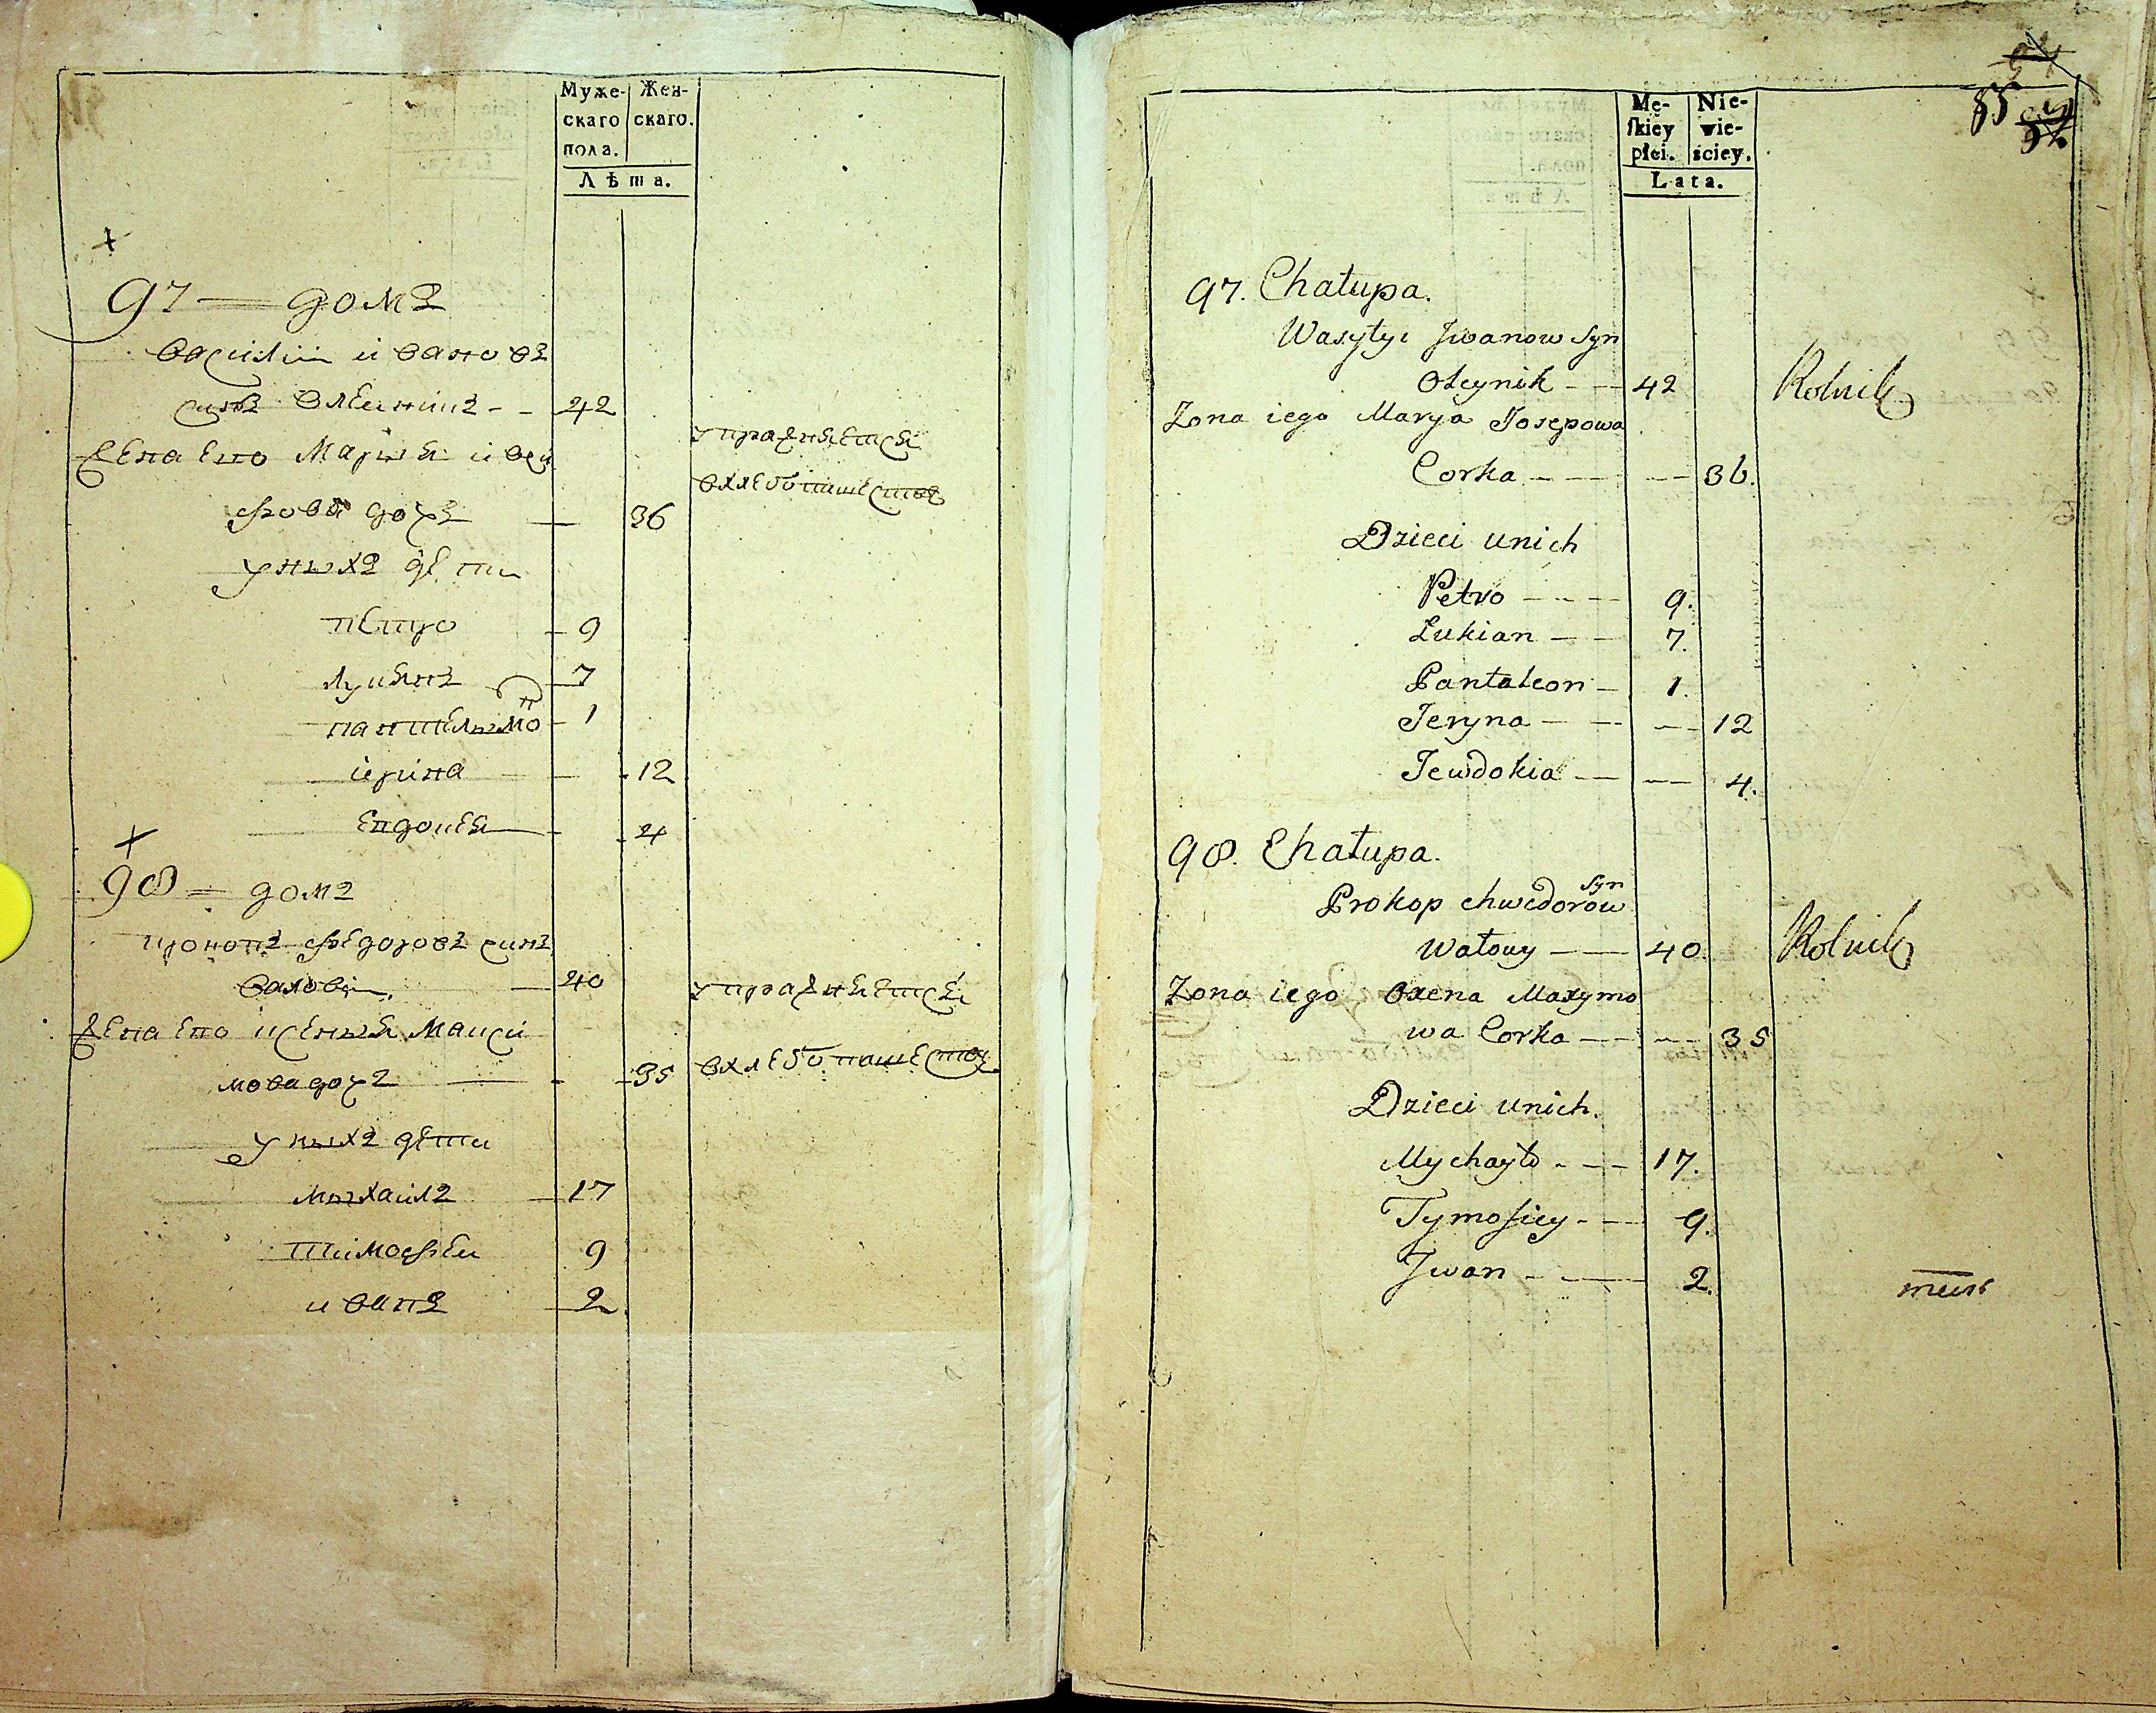 Муже-
скаго
пола.
Жен-
скаго.
Лѣта.
97 — домъ
Василіи Ивановъ
синъ Олеиникъ - - 42
упражняется
Жена Его Мария иоси
вхлебопашествѣ
фова дочъ — 36
унихъ дети
петро - 9
Лукянъ - 7
пантелымо н - 1
ирина — - 12
Евдокея - 4
98 = домъ
прокопъ Федоровъ синъ
Валовыи. — 40
упражняется
Жена Его ксеныя Макси
мова дочъ — - 35
вхлебопашеству
у ныхъ дети
мыхаилъ - 17
тимофеи 9
иванъ 2
85
Mę-
skiey
płci.
Nie-
wie-
ściey.
Lata.
97. Chałupa.
Wasyłyi Jwanow Syn
Oleynik - — 42
Rolnik
Zona iego Marya Josepowa
Corka - — - — 36.
Dzieci unich
Petro — - — 9.
Łukian — — 7.
Pantaleon — 1.
Jeryna — — — 12
Jewdokia — — 4.
98. Chałupa.
Syn
Prokop chwedorow
Wałowy — — 40.
Rolnik
Zona iego Oxena Maxymo
wa Corka — — — 35
Dzieci unich.
Mychayło - — - 17.
Tymofiey - — 9.
Jwan - — 2.